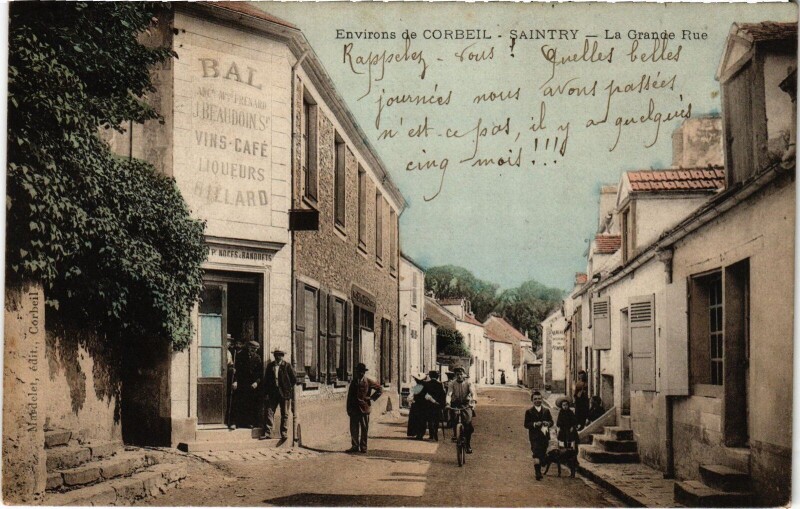 Environs de CORBEIL - SAINTRY — La Grande Rue
Rappelez-vous ! Quelles belles
journées nous avons passées
n'est-ce pas, il y a quelques
cinq mois !!!
BAL
J. BEAUDOIN Sr
VINS-CAFÉ
LIQUEURS
BILLARD
Pr NOCES & BANQUETS
Mardelet, édit., Corbeil